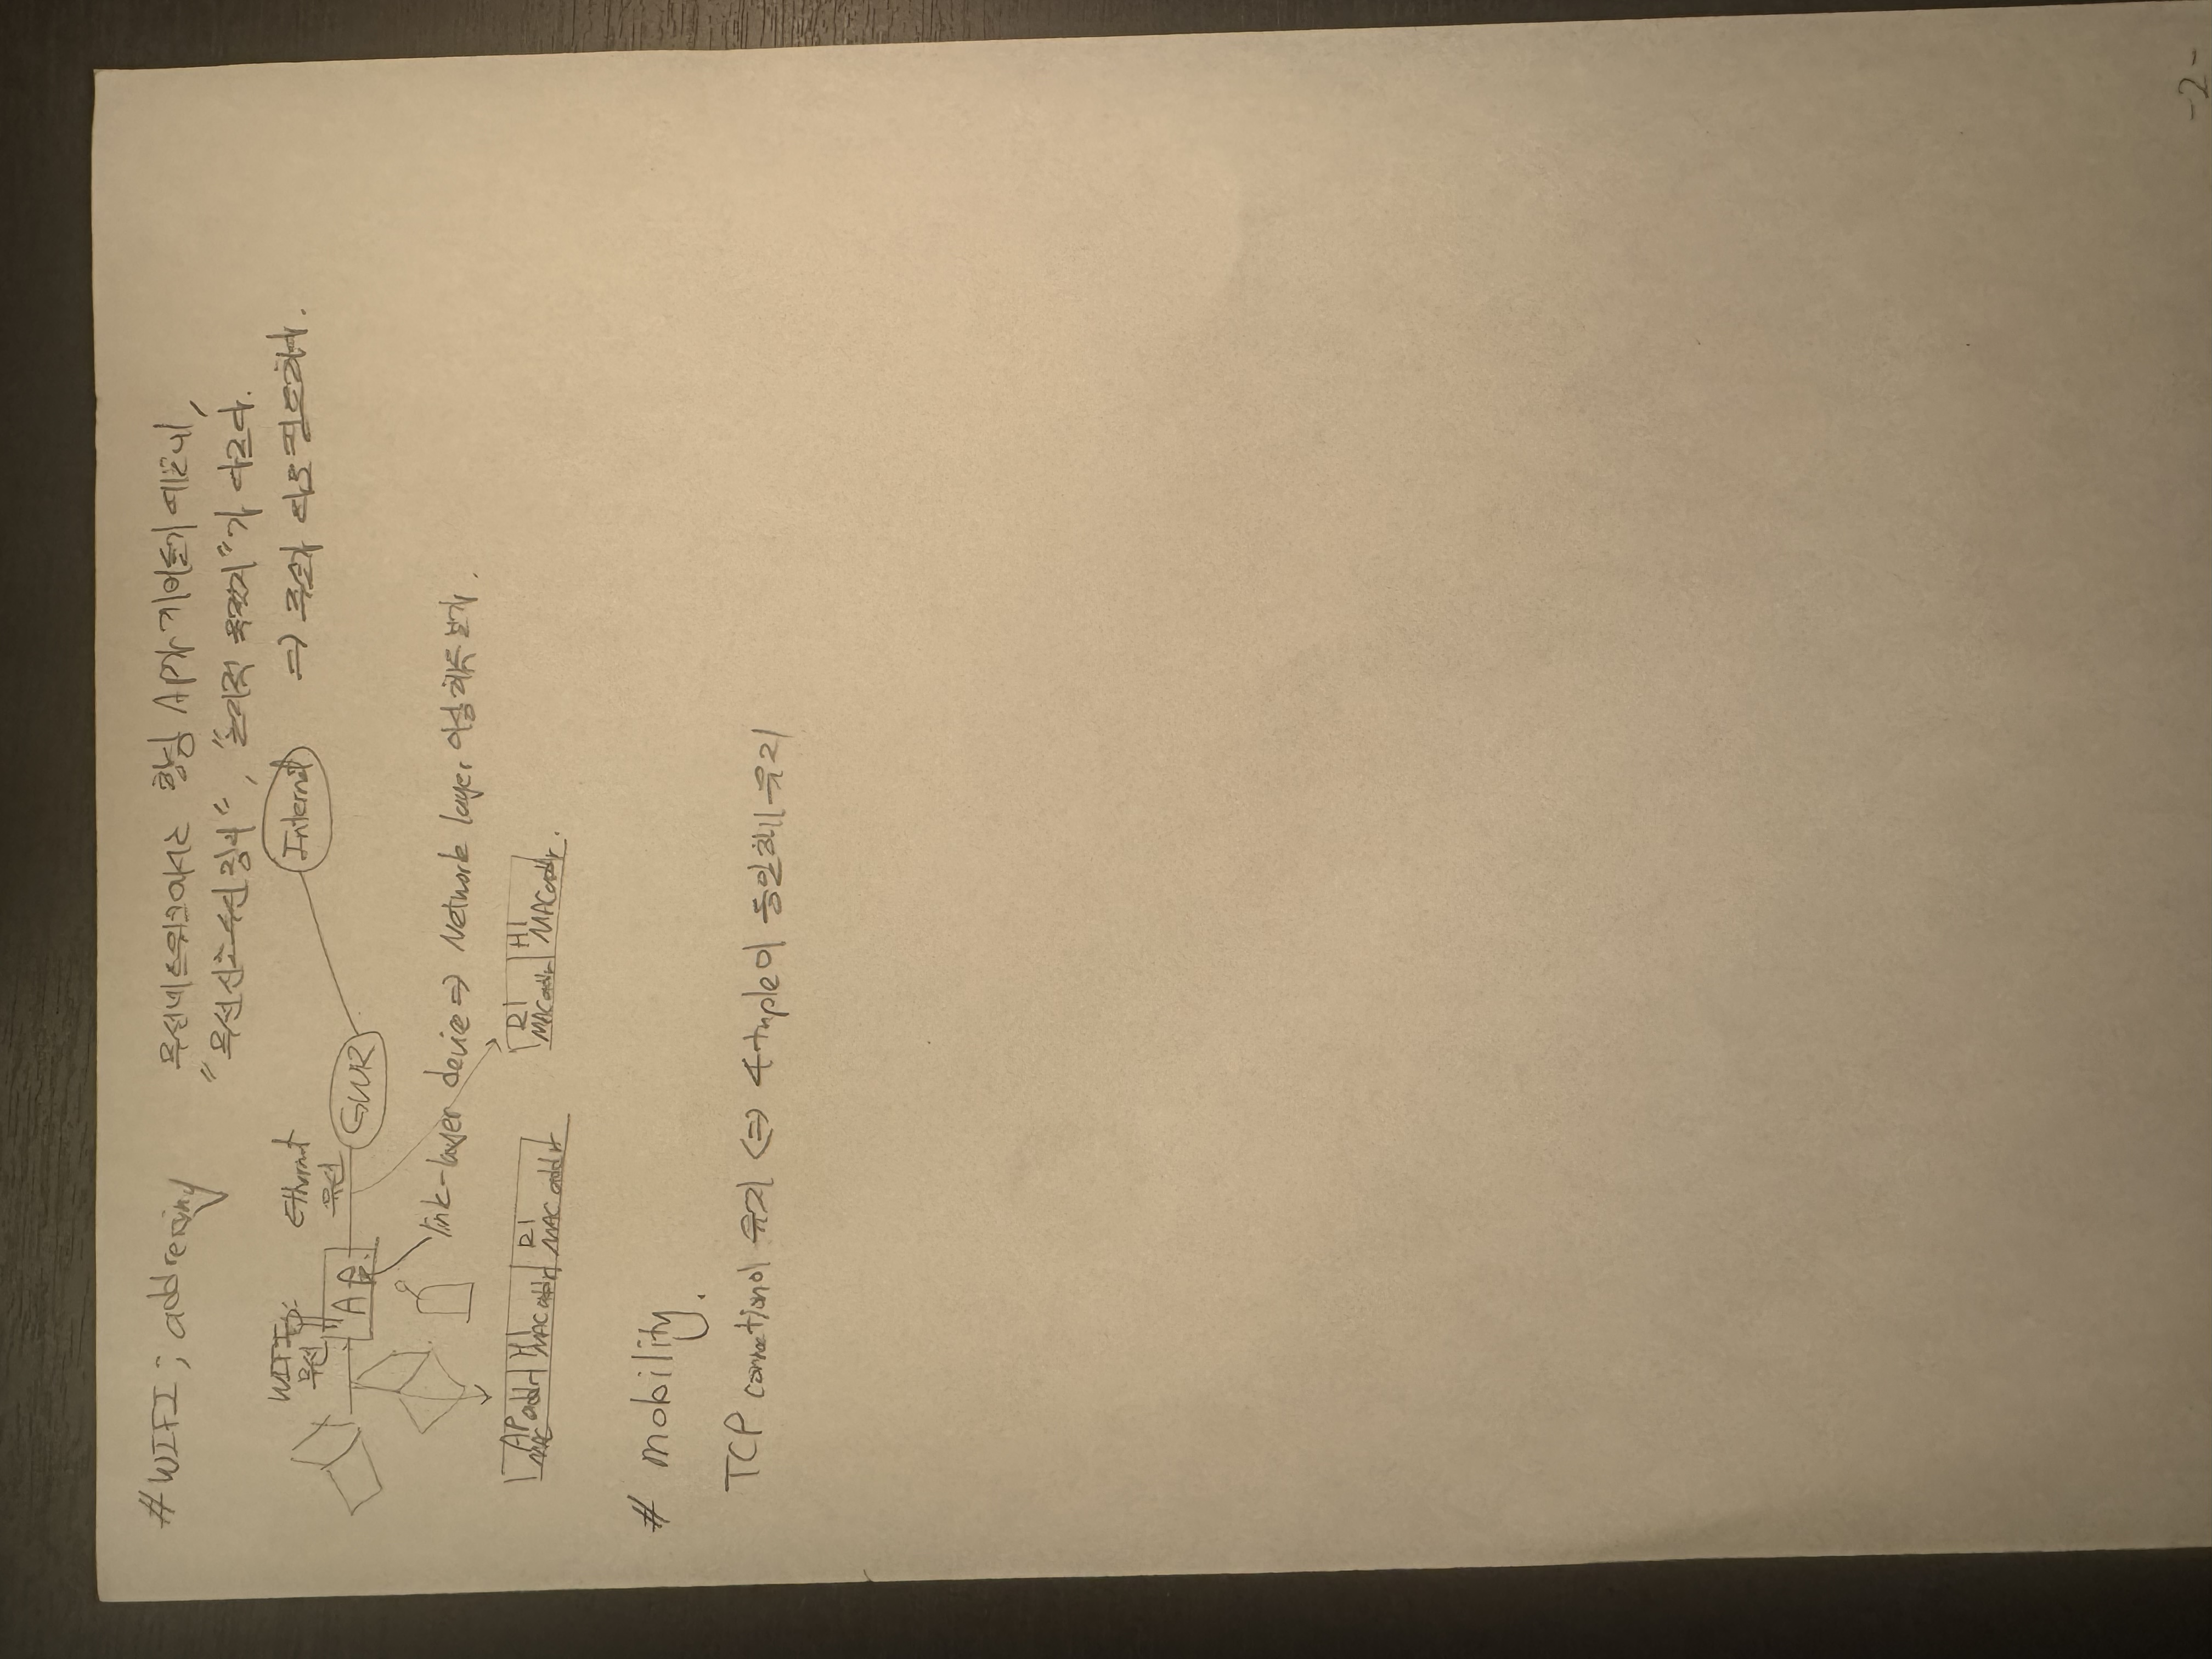 # WIFI ; addressing
무선네트워크에서는 항상 AP가 끼어들기 때문에,
"무선신호수신장비", "논리적 목적지"가 다르다.
⇒ 주소가 따로 필요하다.
WIFI
무선
Ethernet
유선
AP
GWR
Internet
link-layer device ⇒ Network layer 이상 해독 불가.
AP MAC addr H1 MAC addr R1 MAC addr
R1 MAC addr H1 MAC addr.
# mobility.
TCP connection이 유지 ⇔ 4tuple이 동일하게 유지
-2-